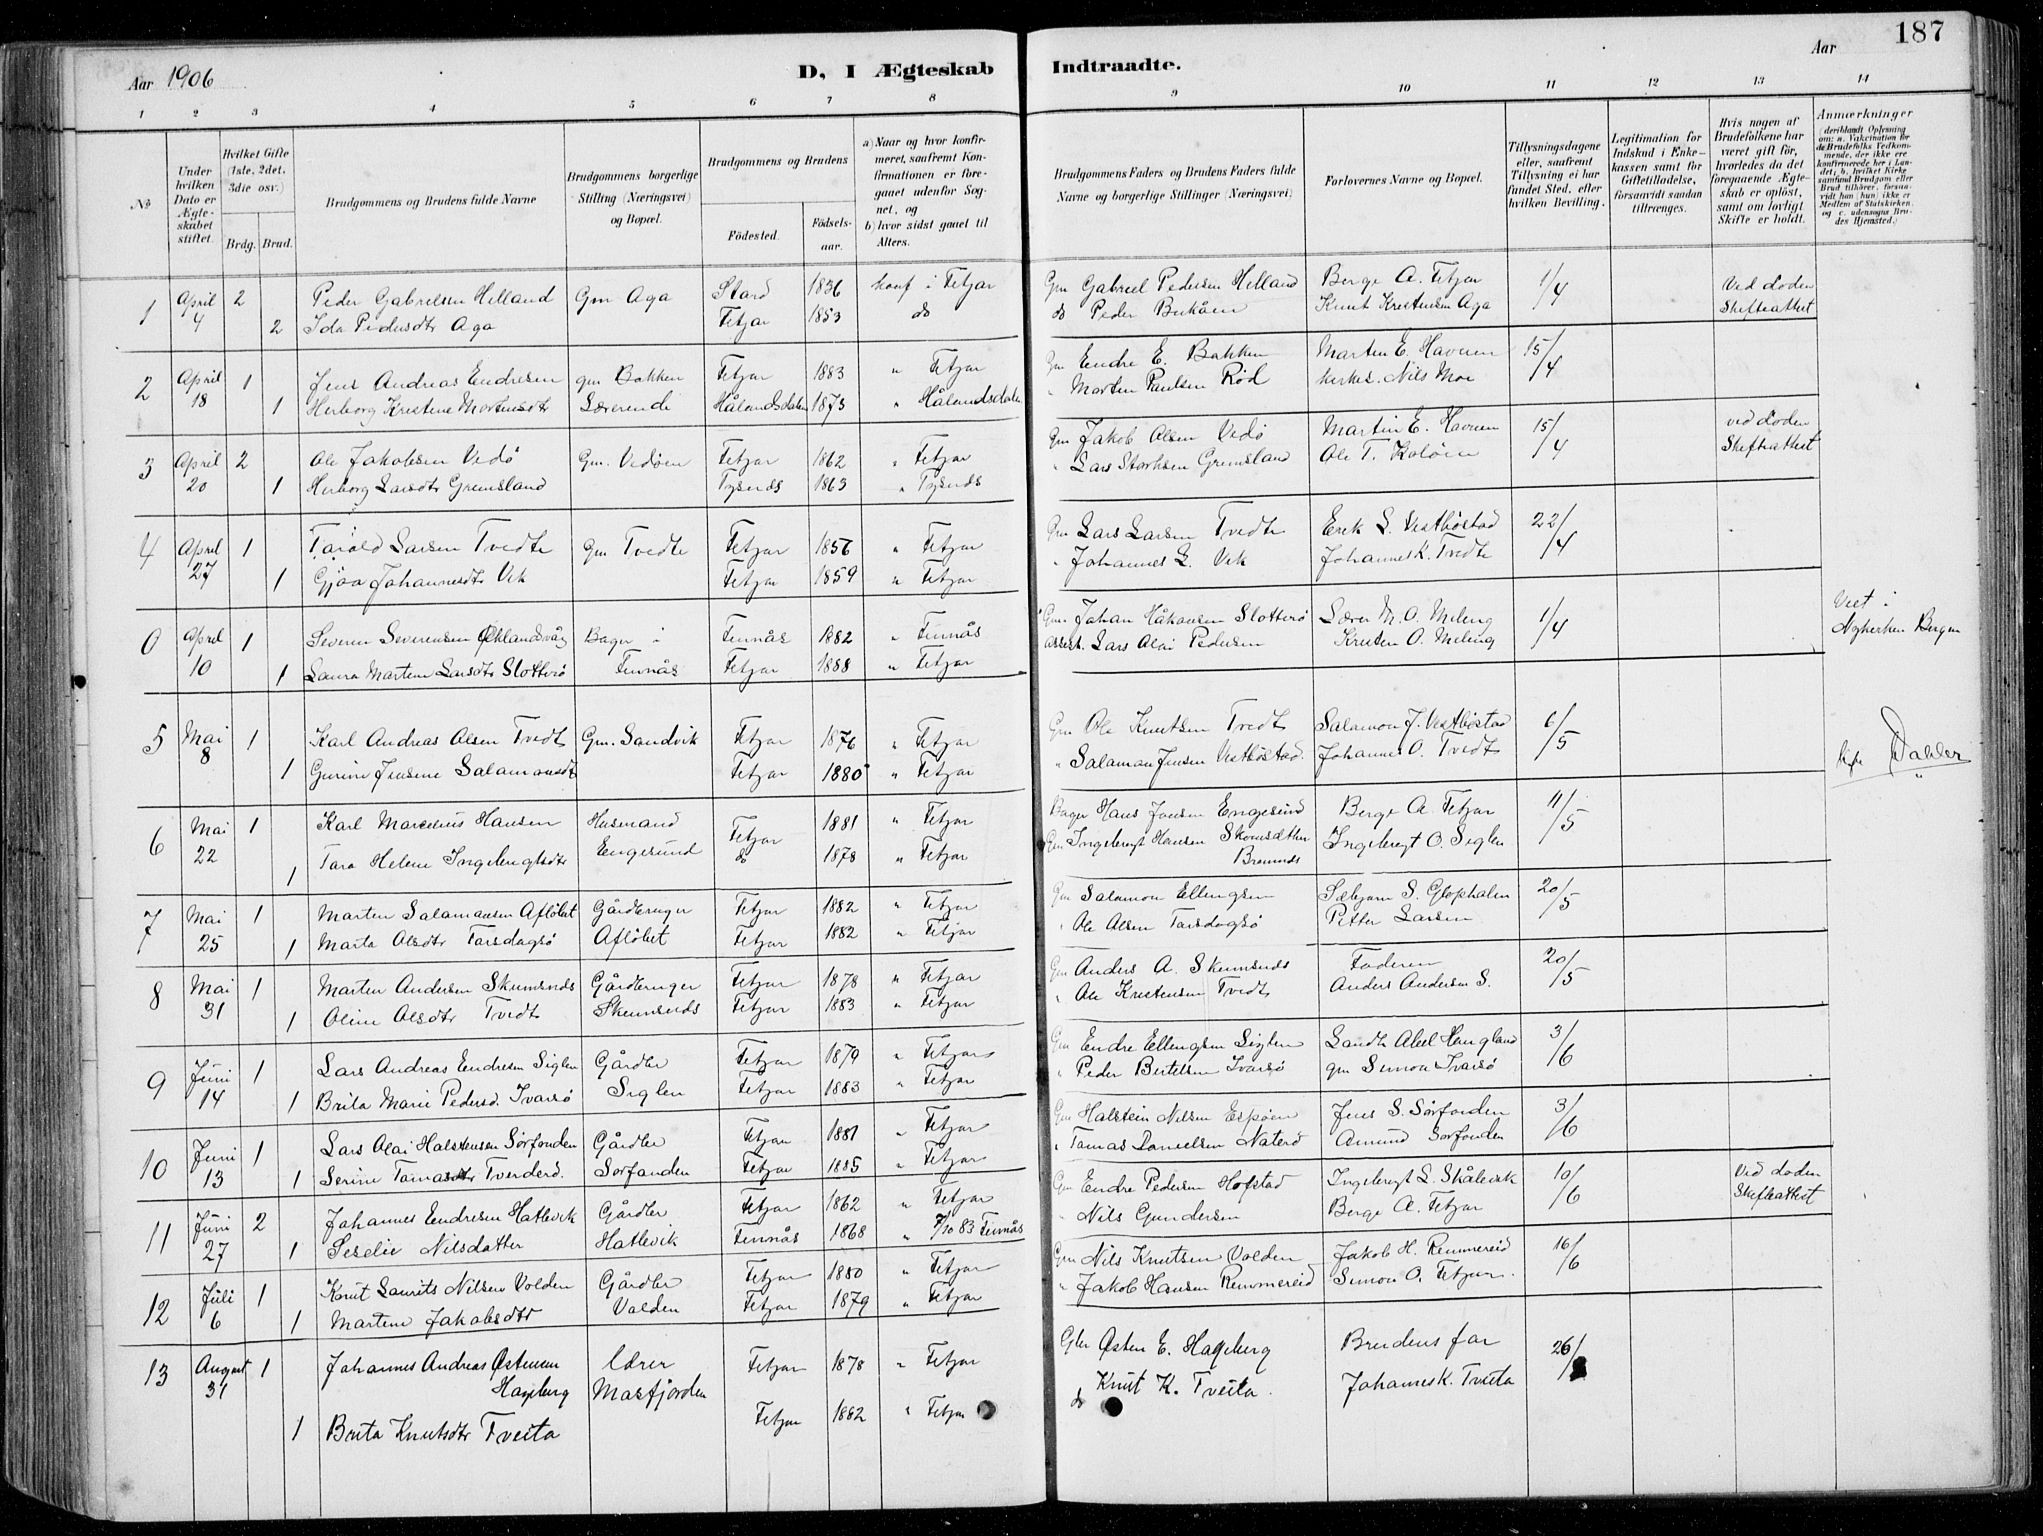 187
Aar 1906
D, I Ægteskab Indtraadte.
Aar
1 2 3 4 5 6 7 8 9 10 11 12 13 14
No
Under hvilken Dato er Ægteskabet stiftet.
Hvilket Gifte (1ste, 2det, 3die osv.)
Brdg. Brud.
Brudgommens og Brudens fulde Navne
Brudgommens borgerlige Stilling (Næringsvei) og Bopæl.
Brudgommens og Brudens
Fødested.
Fødselsaar.
a) Naar og hvor konfirmeret, saafremt Konfirmationen er foregaaet udenfor Sognet, og
b) hvor sidst gaaet til Alters.
Brudgommens Faders og Brudens Faders fulde Navne og borgerlige Stillinger (Næringsvei)
Forlovernes Navne og Bopæl.
Tillysningsdagene eller, saafremt Tillysning ei har fundet Sted, efter hvilken Bevilling.
Legitimation for Indskud i Enkekassen samt for Giftetilladelse, forsaavidt saadan tiltrænges.
Hvis nogen af Brudefolkene har været gift før, hvorledes da det foregaaende Ægteskab er opløst, samt om lovligt Skifte er holdt.
Anmærkninger
(deriblandt Oplysning om: a. Vakcination for de Brudefolks Vedkommende, der ikke ere konfirmerede her i Landet; b. hvilket Kirkesamfund Brudgom eller Brud tilhører, forsaavidt han (hun) ikke er Medlem af Statskirken, og c. udensogns Brudes Hjemsted.)
1 April 2 Peder Gabrielsen Helland Gm Aga Stord 1836 konf i Fitjar Gm Gabriel Pedersen Helland Berge A. Fitjar 1/4 Ved døden
4 2 Ida Pedersdtr Aga Fitjar 1853 do do Peder Knut Kristensen Aga Skifteattest
2 April 1 Jens Andreas Endresen gm Bakken Fitjar 1883 " Fitjar Gm Endre E. Bakken Marten E. Havnen 15/4
18 1 Herborg Kristine Mortensdtr Hålandsdalen 1873 " Hålandsdalen " Morten Paulsen Rød Nils Moe
3 April 2 Ole Jakobsen Vedø Gm. Vedøen Fitjar 1862 " Fitjar Gm Jakob Olsen Vedø Martin E. Havnen 15/4 ved døden
20 1 Herborg Larsdtr Gremsland Tysnes 1863 " Tysnes " Lars Gremsland Ole T. Koløen Skifteattest
4 April 1 Tarald Larsen Tvedte Gm Tvedte Fitjar 1856 " Fitjar Gm Lars Larsen Tvedte Erek L. Vestbøstad 22/4
27 1 Gjøa Johannesdtr Vik Fitjar 1859 " Fitjar " Johannes L. Vik Johannes K. Tvedte
0 April 1 Severin Severensen Øklandsvåg Bager i Finnås 1882 " Finnås Gm. Johan Håkonsen Slotterø Lærer M. O. Meling 1/4 Viet i
10 1 Laura Martine Larsdtr Slotterø Finnås Fitjar 1888 " Fitjar Lars Olai Pedersen Kristen O. Meling Nykirken Bergen
5 Mai 1 Karl Andreas Olsen Tvedt Gm. Sandvik Fitjar 1876 " Fitjar Gm Ole Knutsen Tvedt Salamon J. Vestbøstad 6/5
8 1 Gurine Jensine Salamonsdtr Fitjar 1880 " Fitjar " Salamon Jensen Vestbøstad. Johannes O. Tvedt Dahler
6 Mai 1 Karl Marcelius Hansen Husmand Fitjar 1881 " Fitjar Bager Hans Jonsen Engesund Berge A. Fitjar 11/5
22 1 Tara Helene Ingebrigtsdtr Engesund do 1878 " Fitjar Gm Ingebrigt Hansen Ingebrigt O. Siglen
7 Mai 1 Marten Salamonsen Afløbet Gårdbruger Fitjar 1882 " Fitjar Gm Salamon Ellingsen Sæbjørn S. Glophalen 20/5
25 1 Marta Olsdtr Tarsdagsø Afløbet Fitjar 1882 " Fitjar " Ole Olsen Tarsdagsø Petter Larsen
8 Mai 1 Marten Andersen Skumsnes Gårdbruger Fitjar 1878 " Fitjar Gm Anders A. Skumsnes Faderen 20/5
31 1 Oline Olsdtr Tvedt Skumsnes Fitjar 1883 " Fitjar " Ole Kristensen Tvedt Anders Andersen S.
9 Juni 1 Lars Andreas Endresen Siglen Gårdbr Fitjar 1879 " Fitjar Gm Endre Ellingsen Siglen Abel Haugland 3/6
14 1 Brita Marie Pedersd. Ivarsø Siglen Fitjar 1883 " Fitjar " Peder Bertelsen Ivarsø gm Simon Ivarsø
10 Juni 1 Lars Olai Halstensen Sørfonden Gårdbr Fitjar 1881 " Fitjar Gm Halstein Nilsen Espøen Jens S. Sørfonden 3/6
13 1 Serine Tamasdtr Tverderø. Sørfonden Fitjar 1885 " Fitjar " Tamas Danielsen Naterø Amund Sørfonden
11 Juni 2 Johannes Endresen Hatlevik Gårdbr Fitjar 1862 " Fitjar Gm Endre Pedersen Hofstad Ingebrigt L. Skålevik 10/6 Ved døden
27 1 Seselie Nilsdatter Hatlevik Finnås 1868 " 7/10 83 Finnås " Nils Gundersen Berge A. Fitjar Skifteattest
12 Juli 1 Knut Laurits Nilsen Volden Gårdbr Fitjar 1880 " Fitjar Gm Nils Knutsen Volden Jakob H. Remmereid 16/6
6 1 Martine Jakobsdtr Volden Fitjar 1879 " Fitjar " Jakob Hansen Remmereid Simon O. Fitjar.
13 August 1 Johannes Andreas Østensen Lærer Fitjar 1878 " Fitjar Gbr Østen E. Hageberg Brudens far 26/8
31 Hageberg Masfjorden
1 Brita Knutsdtr Tveita Fitjar 1882 " Fitjar do Knut K. Tveita. Johannes K. Tveita